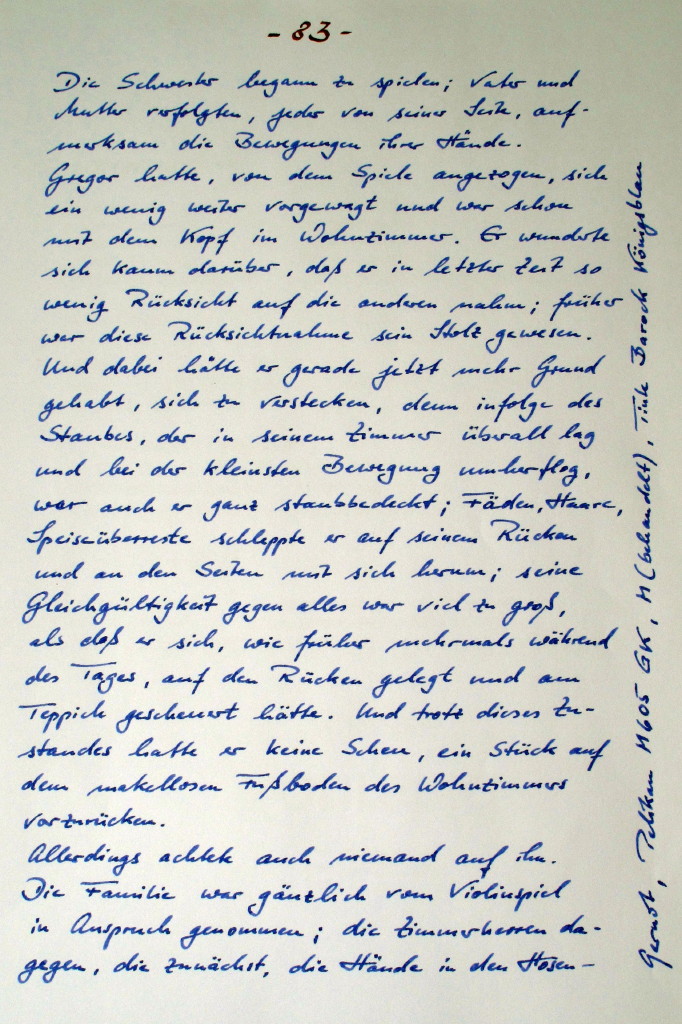 - 83 -
Die Schwester begann zu spielen; Vater und
Mutter verfolgten, jeder von seiner Seite, auf-
merksam die Bewegungen ihrer Hände.
Gregor hatte, von dem Spiele angezogen, sich
ein wenig weiter vorgewagt und war schon
mit dem Kopf im Wohnzimmer. Er wunderte
sich kaum darüber, daß er in letzter Zeit so
wenig Rücksicht auf die anderen nahm; früher
war diese Rücksichtnahme sein Stolz gewesen.
Und dabei hätte er gerade jetzt mehr Grund
gehabt, sich zu verstecken, denn infolge des
Staubes, der in seinem Zimmer überall lag
und bei der kleinsten Bewegung umherflog,
war auch er ganz staubbedeckt; Fäden, Haare,
Speiseüberreste schleppte er auf seinem Rücken
und an den Seiten mit sich herum; seine
Gleichgültigkeit gegen alles war viel zu groß,
als daß er sich, wie früher mehrmals während
des Tages, auf den Rücken gelegt und am
Teppich gescheuert hätte. Und trotz dieses Zu-
standes hatte er keine Scheu, ein Stück auf
dem makellosen Fußboden des Wohnzimmers
vorzurücken.
Allerdings achtete auch niemand auf ihn.
Die Familie war gänzlich vom Violinspiel
in Anspruch genommen; die Zimmerherren da-
gegen, die zunächst, die Hände in den Hosen-
Gernot, Pelikan M605 GK, M (behandelt), Tinte Barock Königsblau